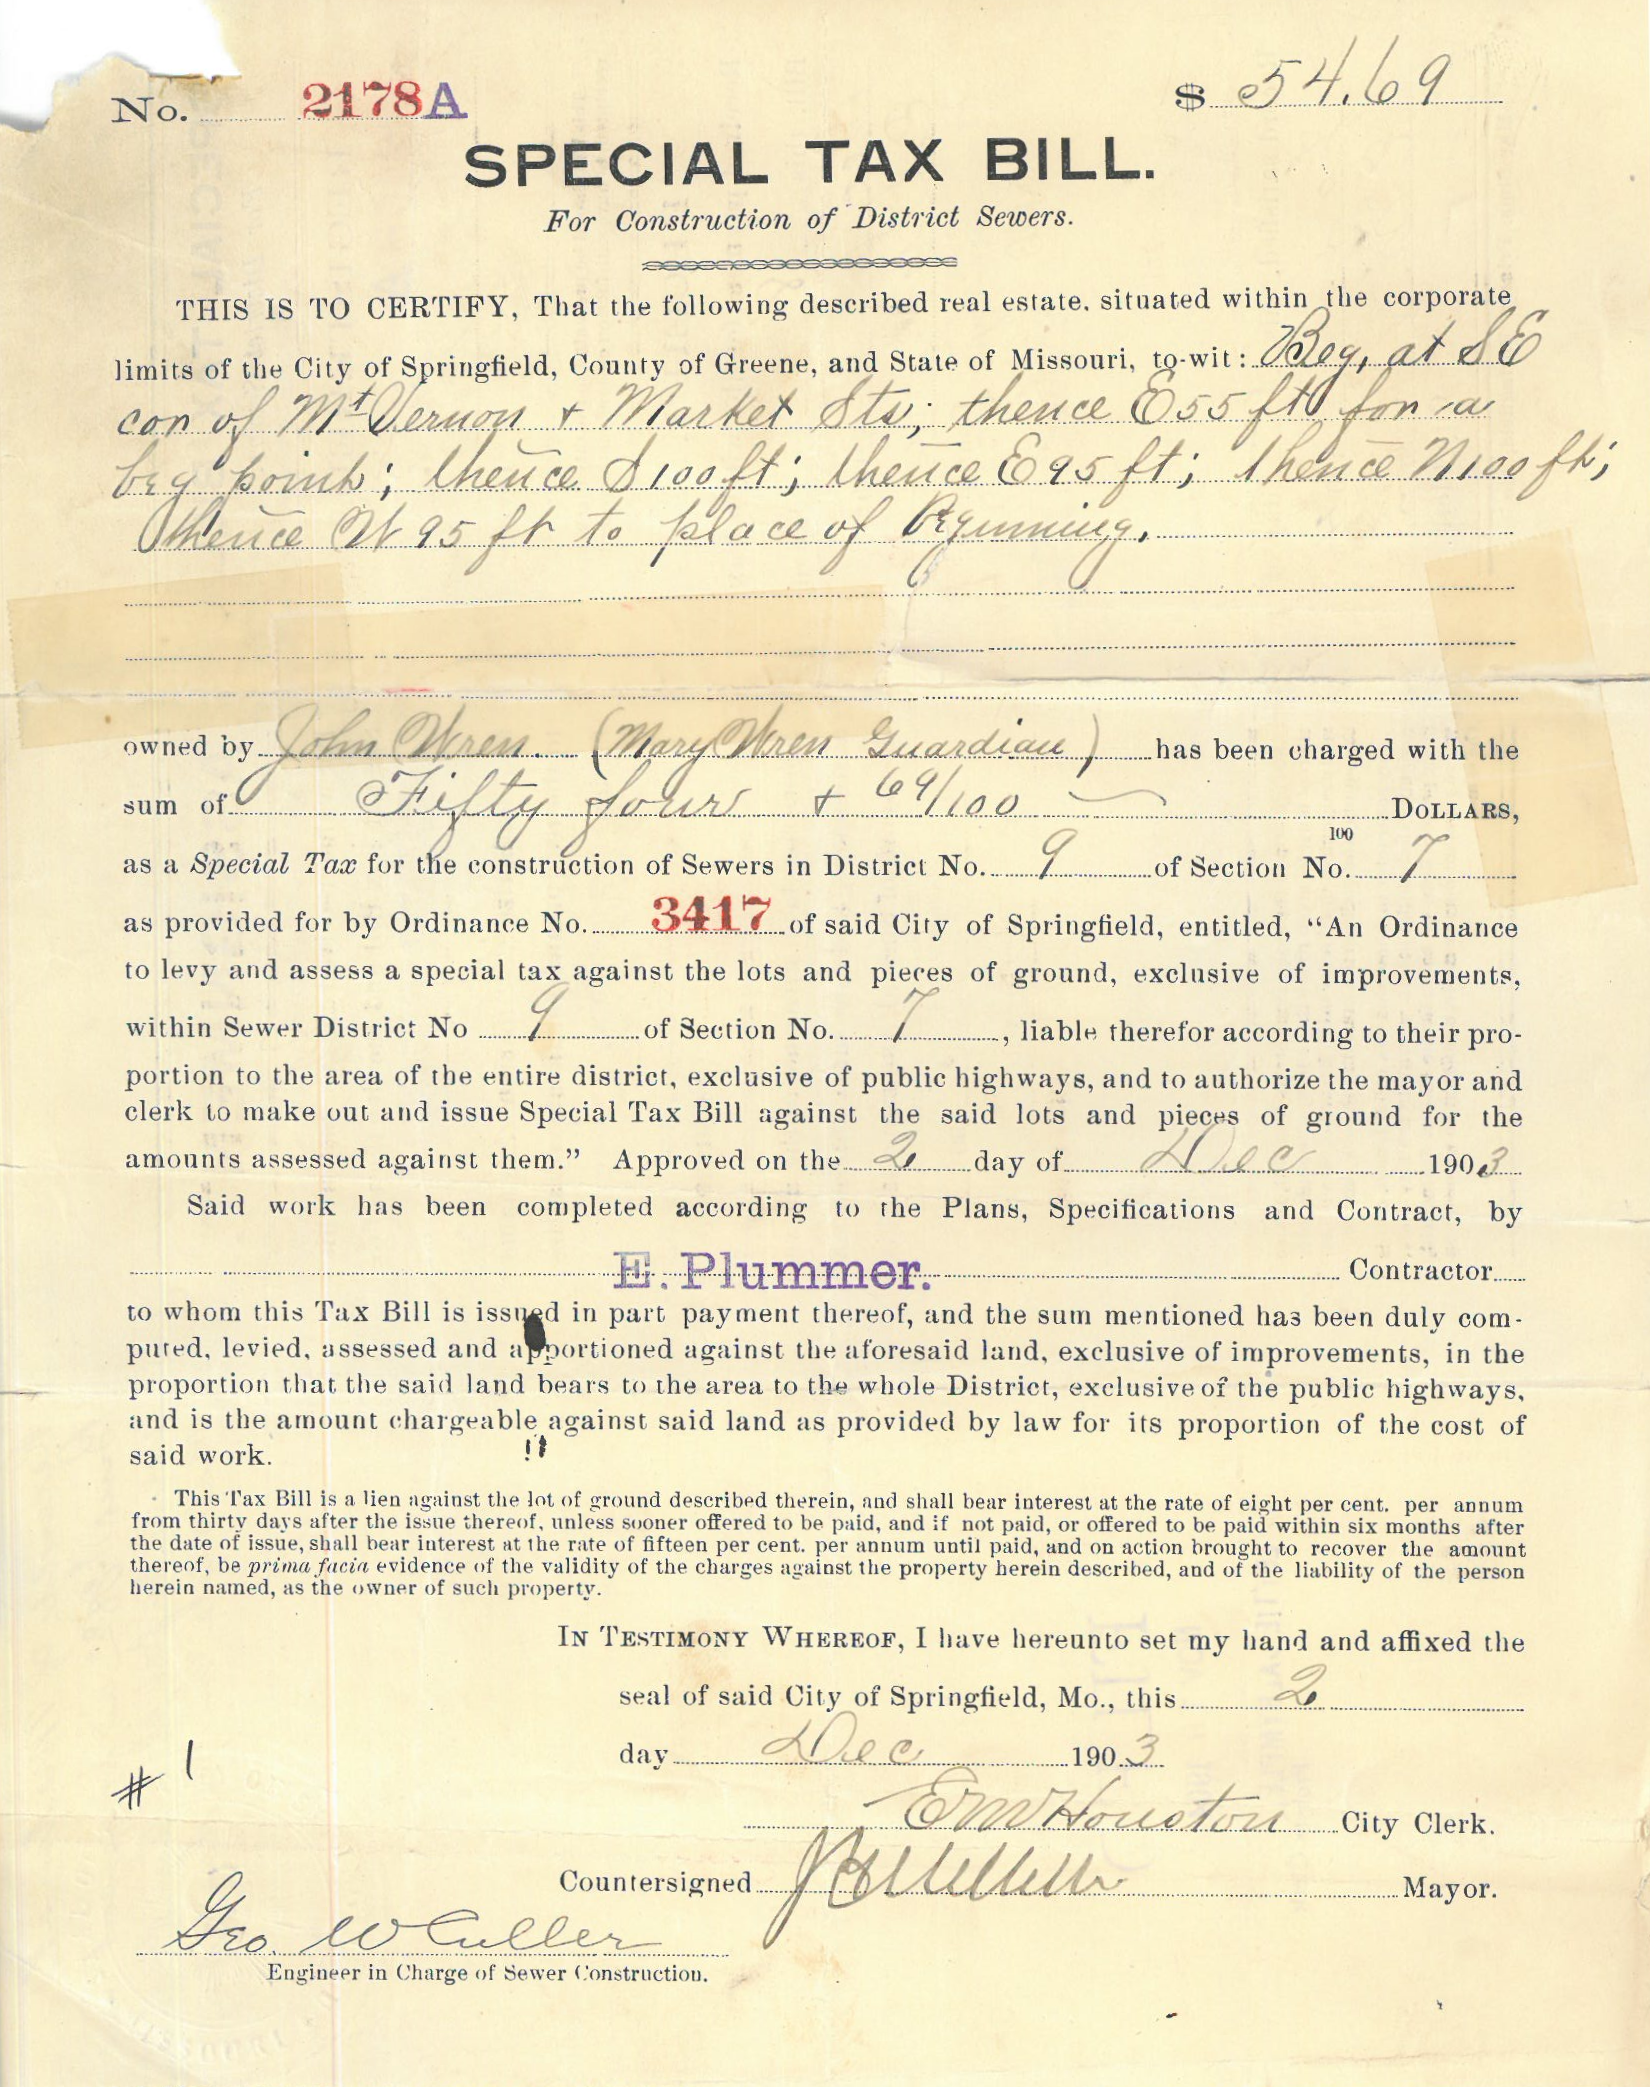 No. 2178A $ 54.69
SPECIAL TAX BILL.
For Construction of District Sewers.
THIS IS TO CERTIFY, That the following described real estate. situated within the corporate
limits of the City of Springfield, County of Greene, and State of Missouri, to-wit: Beg, at SE
cor of Mt Vernon + Market Sts; thence E 55 ft for a
beg point; thence S 100 ft; thence E 95 ft; thence N 100 ft;
thence W 95 ft to place of Beginning.
owned by John Wren. (Mary Wren Guardian) has been charged with the
sum of Fifty four + 69/100 DOLLARS,
100
as a Special Tax for the construction of Sewers in District No. 9 of Section No. 7
as provided for by Ordinance No. 3417 of said City of Springfield, entitled, "An Ordinance
to levy and assess a special tax against the lots and pieces of ground, exclusive of improvements,
within Sewer District No 9 of Section No. 7, liable therefor according to their pro-
portion to the area of the entire district, exclusive of public highways, and to authorize the mayor and
clerk to make out and issue Special Tax Bill against the said lots and pieces of ground for the
amounts assessed against them." Approved on the 2 day of Dec 1903
Said work has been completed according to the Plans, Specifications and Contract, by
E. Plummer. Contractor
to whom this Tax Bill is issued in part payment thereof, and the sum mentioned has been duly com-
puted, levied, assessed and apportioned against the aforesaid land, exclusive of improvements, in the
proportion that the said land bears to the area to the whole District, exclusive of the public highways,
and is the amount chargeable against said land as provided by law for its proportion of the cost of
said work.
This Tax Bill is a lien against the lot of ground described therein, and shall bear interest at the rate of eight per cent. per annum
from thirty days after the issue thereof, unless sooner offered to be paid, and if not paid, or offered to be paid within six months after
the date of issue, shall bear interest at the rate of fifteen per cent. per annum until paid, and on action brought to recover the amount
thereof, be prima facia evidence of the validity of the charges against the property herein described, and of the liability of the person
herein named, as the owner of such property.
IN TESTIMONY WHEREOF, I have hereunto set my hand and affixed the
seal of said City of Springfield, Mo., this 2
day Dec 1903
# 1
E M Houston City Clerk.
Countersigned Mayor.
Geo. W Culler
Engineer in Charge of Sewer Construction.